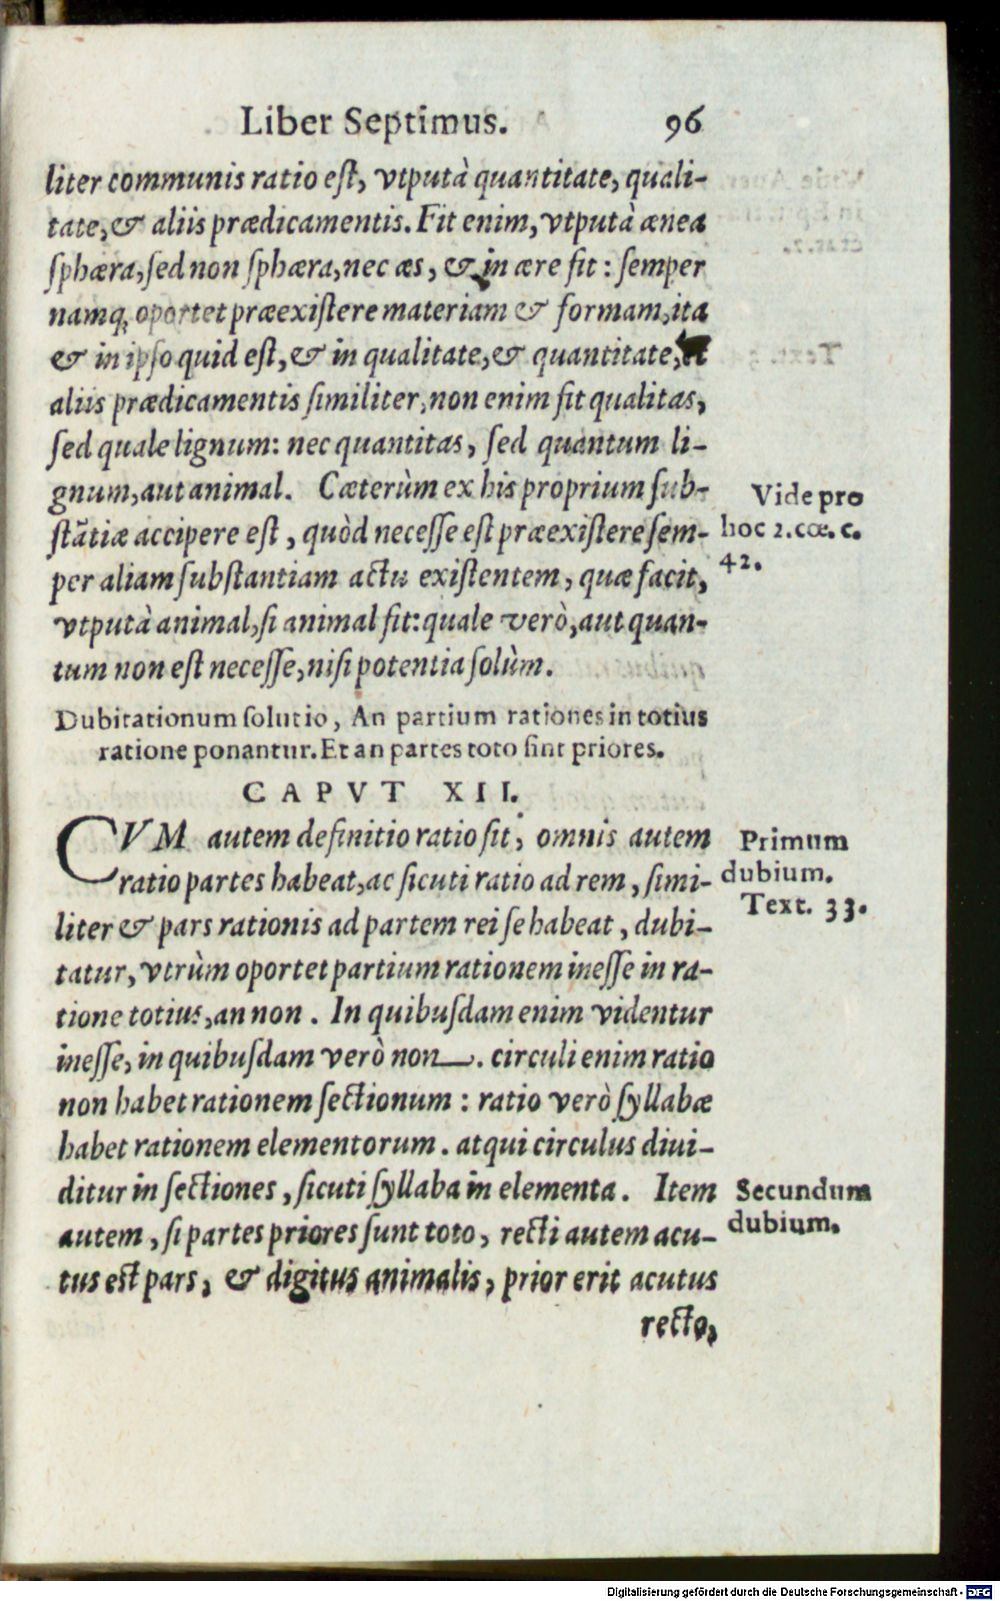 Liber Septimus. 96
liter communis ratio eſt, vtputà quantitate, quali-
tate, & aliis prædicamentis. Fit enim, vtputà ænea
ſphæra, ſed non ſphæra, nec æs, & in ære fit: ſemper
namq; oportet præexiſtere materiam & formam, ita
& in ipſo quid eſt, & in qualitate, & quantitate, et
aliis prædicamentis ſimiliter, non enim fit qualitas,
ſed quale lignum: nec quantitas, ſed quantum li-
gnum, aut animal. Cæterùm ex his proprium ſub-
ſtãtiæ accipere eſt, quòd neceſſe eſt præexiſtere ſem-
per aliam ſubſtantiam actu exiſtentem, quæ facit,
vtputà animal, ſi animal fit: quale verò, aut quan-
tum non eſt neceſſe, niſi potentia ſolùm.
Vide pro
hoc 2. cœ. c.
42.
Dubitationum ſolutio, An partium rationes in totius
ratione ponantur. Et an partes toto ſint priores.
CAPVT XII.
CVM autem definitio ratio ſit, omnis autem
ratio partes habeat, ac ſicuti ratio ad rem, ſimi-
liter & pars rationis ad partem rei ſe habeat, dubi-
tatur, vtrùm oportet partium rationem ineſſe in ra-
tione totius, an non. In quibuſdam enim videntur
ineſſe, in quibuſdam verò non. circuli enim ratio
non habet rationem ſectionum: ratio verò ſyllabæ
habet rationem elementorum. atqui circulus diui-
ditur in ſectiones, ſicuti ſyllaba in elementa. Item
autem, ſi partes priores ſunt toto, recti autem acu-
tus eſt pars, & digitus animalis, prior erit acutus
recto,
Primum
dubium.
Text. 33.
Secundum
dubium.
Digitalisierung gefördert durch die Deutsche Forschungsgemeinschaft - DFG